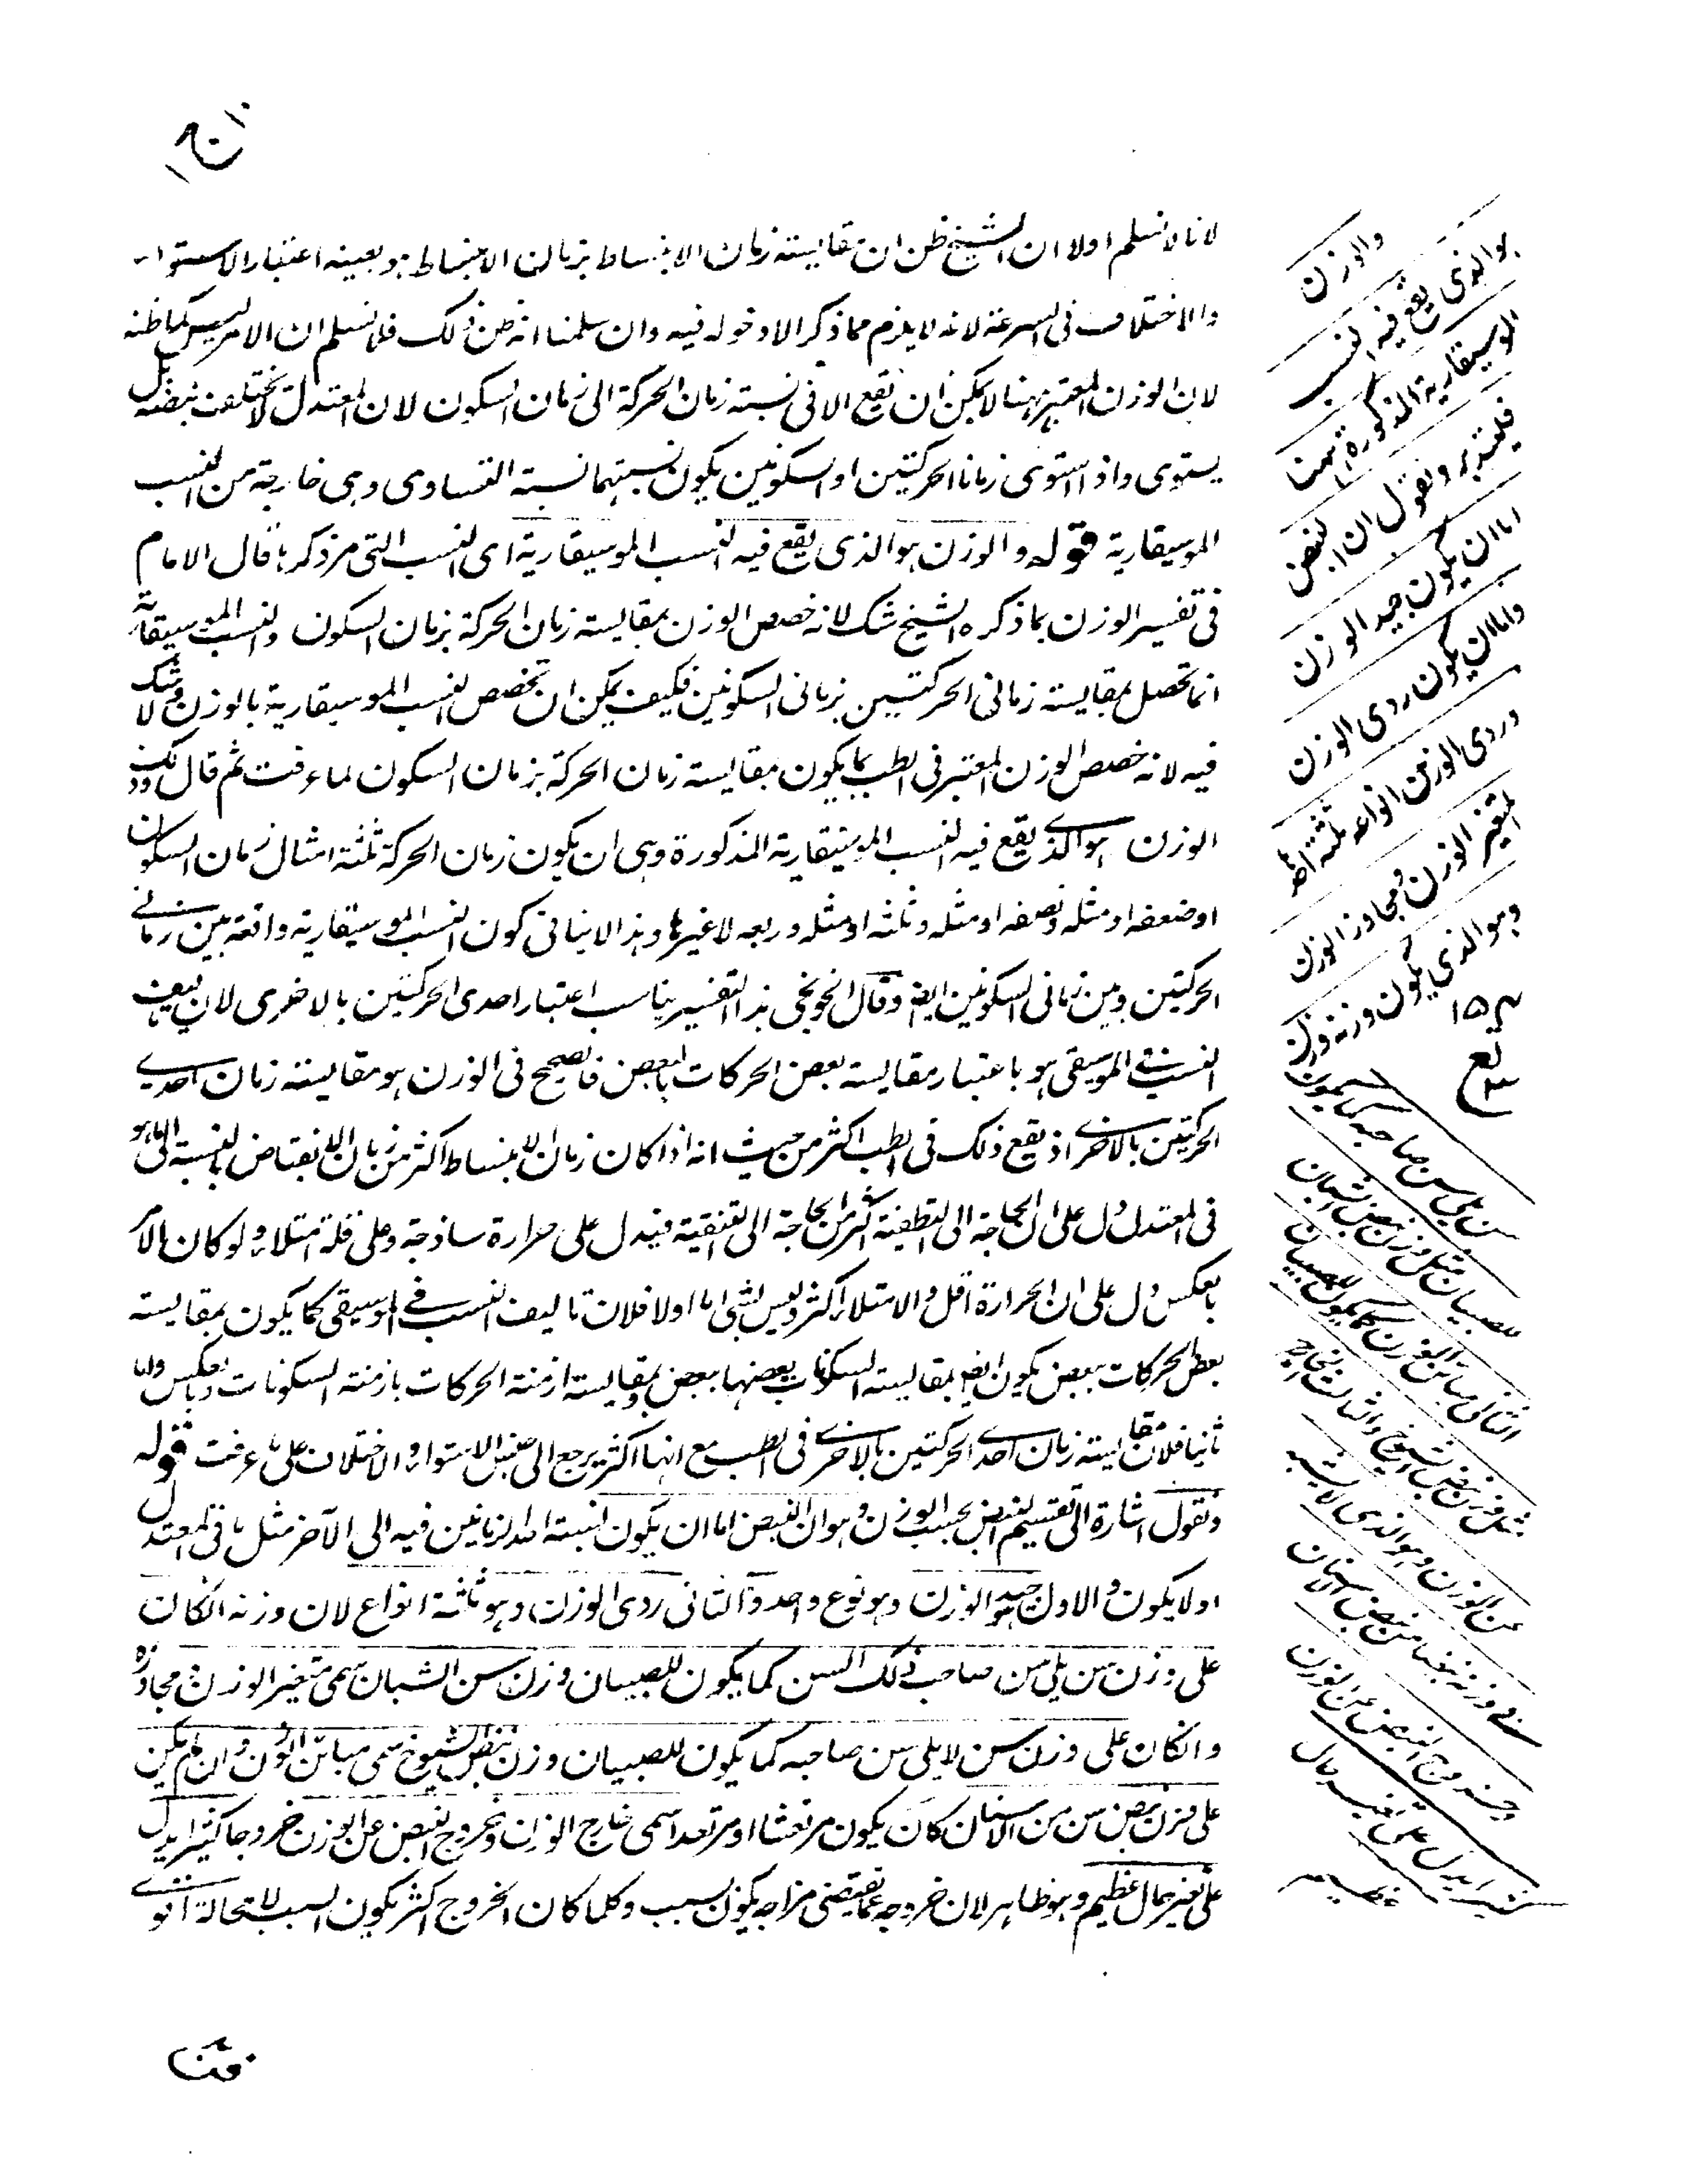 لانا لا نسلم اولا ان الشيخ ظن ان مقايسة زمان الانبساط بزمان الانبساط هو بعينه اعتبار الاستواء
والاختلاف فى السرعة لانه لا يلزم مما ذكر الا دخوله فيه وان سلمنا انه ظن ذلك فلا نسلم ان الامر ليس كما ظنه
لان الوزن المعتبر ههنا لا يمكن ان تقع الا فى نسبة زمان الحركة الى زمان السكون لان المعتدل لا يختلف نبضه بل
يستوى واذا استوى زمانا الحركتين او السكونين يكون نسبتهما نسبة التساوى وهى خارجة من النسب
الموسيقارية قوله والوزن هو الذى يقع فيه النسب الموسيقارية اى النسب التى مر ذكرها قال الامام
فى تفسير الوزن بما ذكره الشيخ شك لانه خصص الوزن بمقايسة زمان الحركة بزمان السكون والنسب الموسيقارية
انما تحصل بمقايسة زمانى الحركتين بزمانى السكونين فكيف يمكن ان تخصص النسب الموسيقارية بالوزن ولا شك
فيه لانه خصص الوزن المعتبر فى الطب بما يكون بمقايسة زمان الحركة بزمان السكون لما عرفت ثم قال وذلك
الوزن هو الذى يقع فيه النسب الموسيقارية المذكورة وهى ان يكون زمان الحركة ثلثة امثال زمان السكون
او ضعفه او مثله ونصفه او مثله وثلثه او مثله وربعه لا غيرها وهذا لا ينافى كون النسب الموسيقارية واقعة بين زمانى
الحركتين وبين زمانى السكونين ايضا وقال الخونجى هذا التفسير يناسب اعتبار احدى الحركتين بالاخرى لان تاليف
النسب فى الموسيقى هو باعتبار مقايسة بعض الحركات بالبعض فالصحيح فى الوزن هو مقايسة زمان احدى
الحركتين بالاخرى اذ يقع ذلك فى الطب اكثر من حيث انه اذا كان زمان الانبساط اكثر من زمان الانقباض بالنسبة الى ما هو
فى المعتدل دل على ان الحاجة الى التطفية اكثر من الحاجة الى التنقية فيدل على حرارة ساذجة وعلى قلة امتلاء ولو كان الامر
بالعكس دل على ان الحرارة اقل والامتلاء اكثر وليس بشئ اما اولا فلان تاليف النسب فى الموسيقى كما يكون بمقايسة
بعض الحركات ببعض يكون ايضا بمقايسة السكونات بعضها ببعض وبمقايسة ازمنة الحركات بازمنة السكونات وبالعكس واما
ثانيا فلان مقايسة زمان احدى الحركتين بالاخرى فى الطب مع انها اكثر يرجع الى جنس الاستواء والاختلاف على ما عرفت قوله
ونقول اشارة الى تقسيم النبض بحسب الوزن وهو ان النبض اما ان يكون نسبة احد الزمانين فيه الى الآخر مثل ما فى المعتدل
او لا يكون والاول هو جيد الوزن وهو نوع واحد والثانى ردى الوزن وهو ثلثة انواع لان وزنه ان كان
على وزن سن يلى سن صاحب ذلك السن كما يكون للصبيان وزن سن الشبان سمى متغير الوزن مجاوزه
وان كان على وزن سن لا يلى سن صاحبه كما يكون للصبيان وزن نبض الشيوخ سمى مباين الوزن وان لم يكن
على وزن نبض سن من الاسنان كان يكون مرتعشا او مرتعدا سمى خارج الوزن وخروج النبض عن الوزن خروجا كثيرا يدل
على تغير حال عظيم وهو ظاهر لان خروجه عما يقتضى مزاجه يكون لسبب وكلما كان الخروج اكثر يكون السبب لا محالة اقوى
والوزن
هو الذى يقع فيه النسب
الموسيقارية المذكورة ثمت
فليتدبر ونقول ان النبض
اما ان يكون جيد الوزن
واما ان يكون ردى الوزن
وردى الوزن انواعه ثلثة احدها
المتغير الوزن ومجاوز الوزن
وهو الذى يكون وزنه وزن
سن يلى سن صاحبه كما يكون
للصبيان مثل وزن نبض الشبان
الثانى مباين الوزن كما يكون للصبيان
مثل وزن نبض الشيوخ والثالث الخارج
عن الوزن وهو الذى لا يشبه
فى وزنه نبضا من نبض الاسنان
وخروج النبض عن الوزن
كثيرا يدل على تغير حال
عظيم